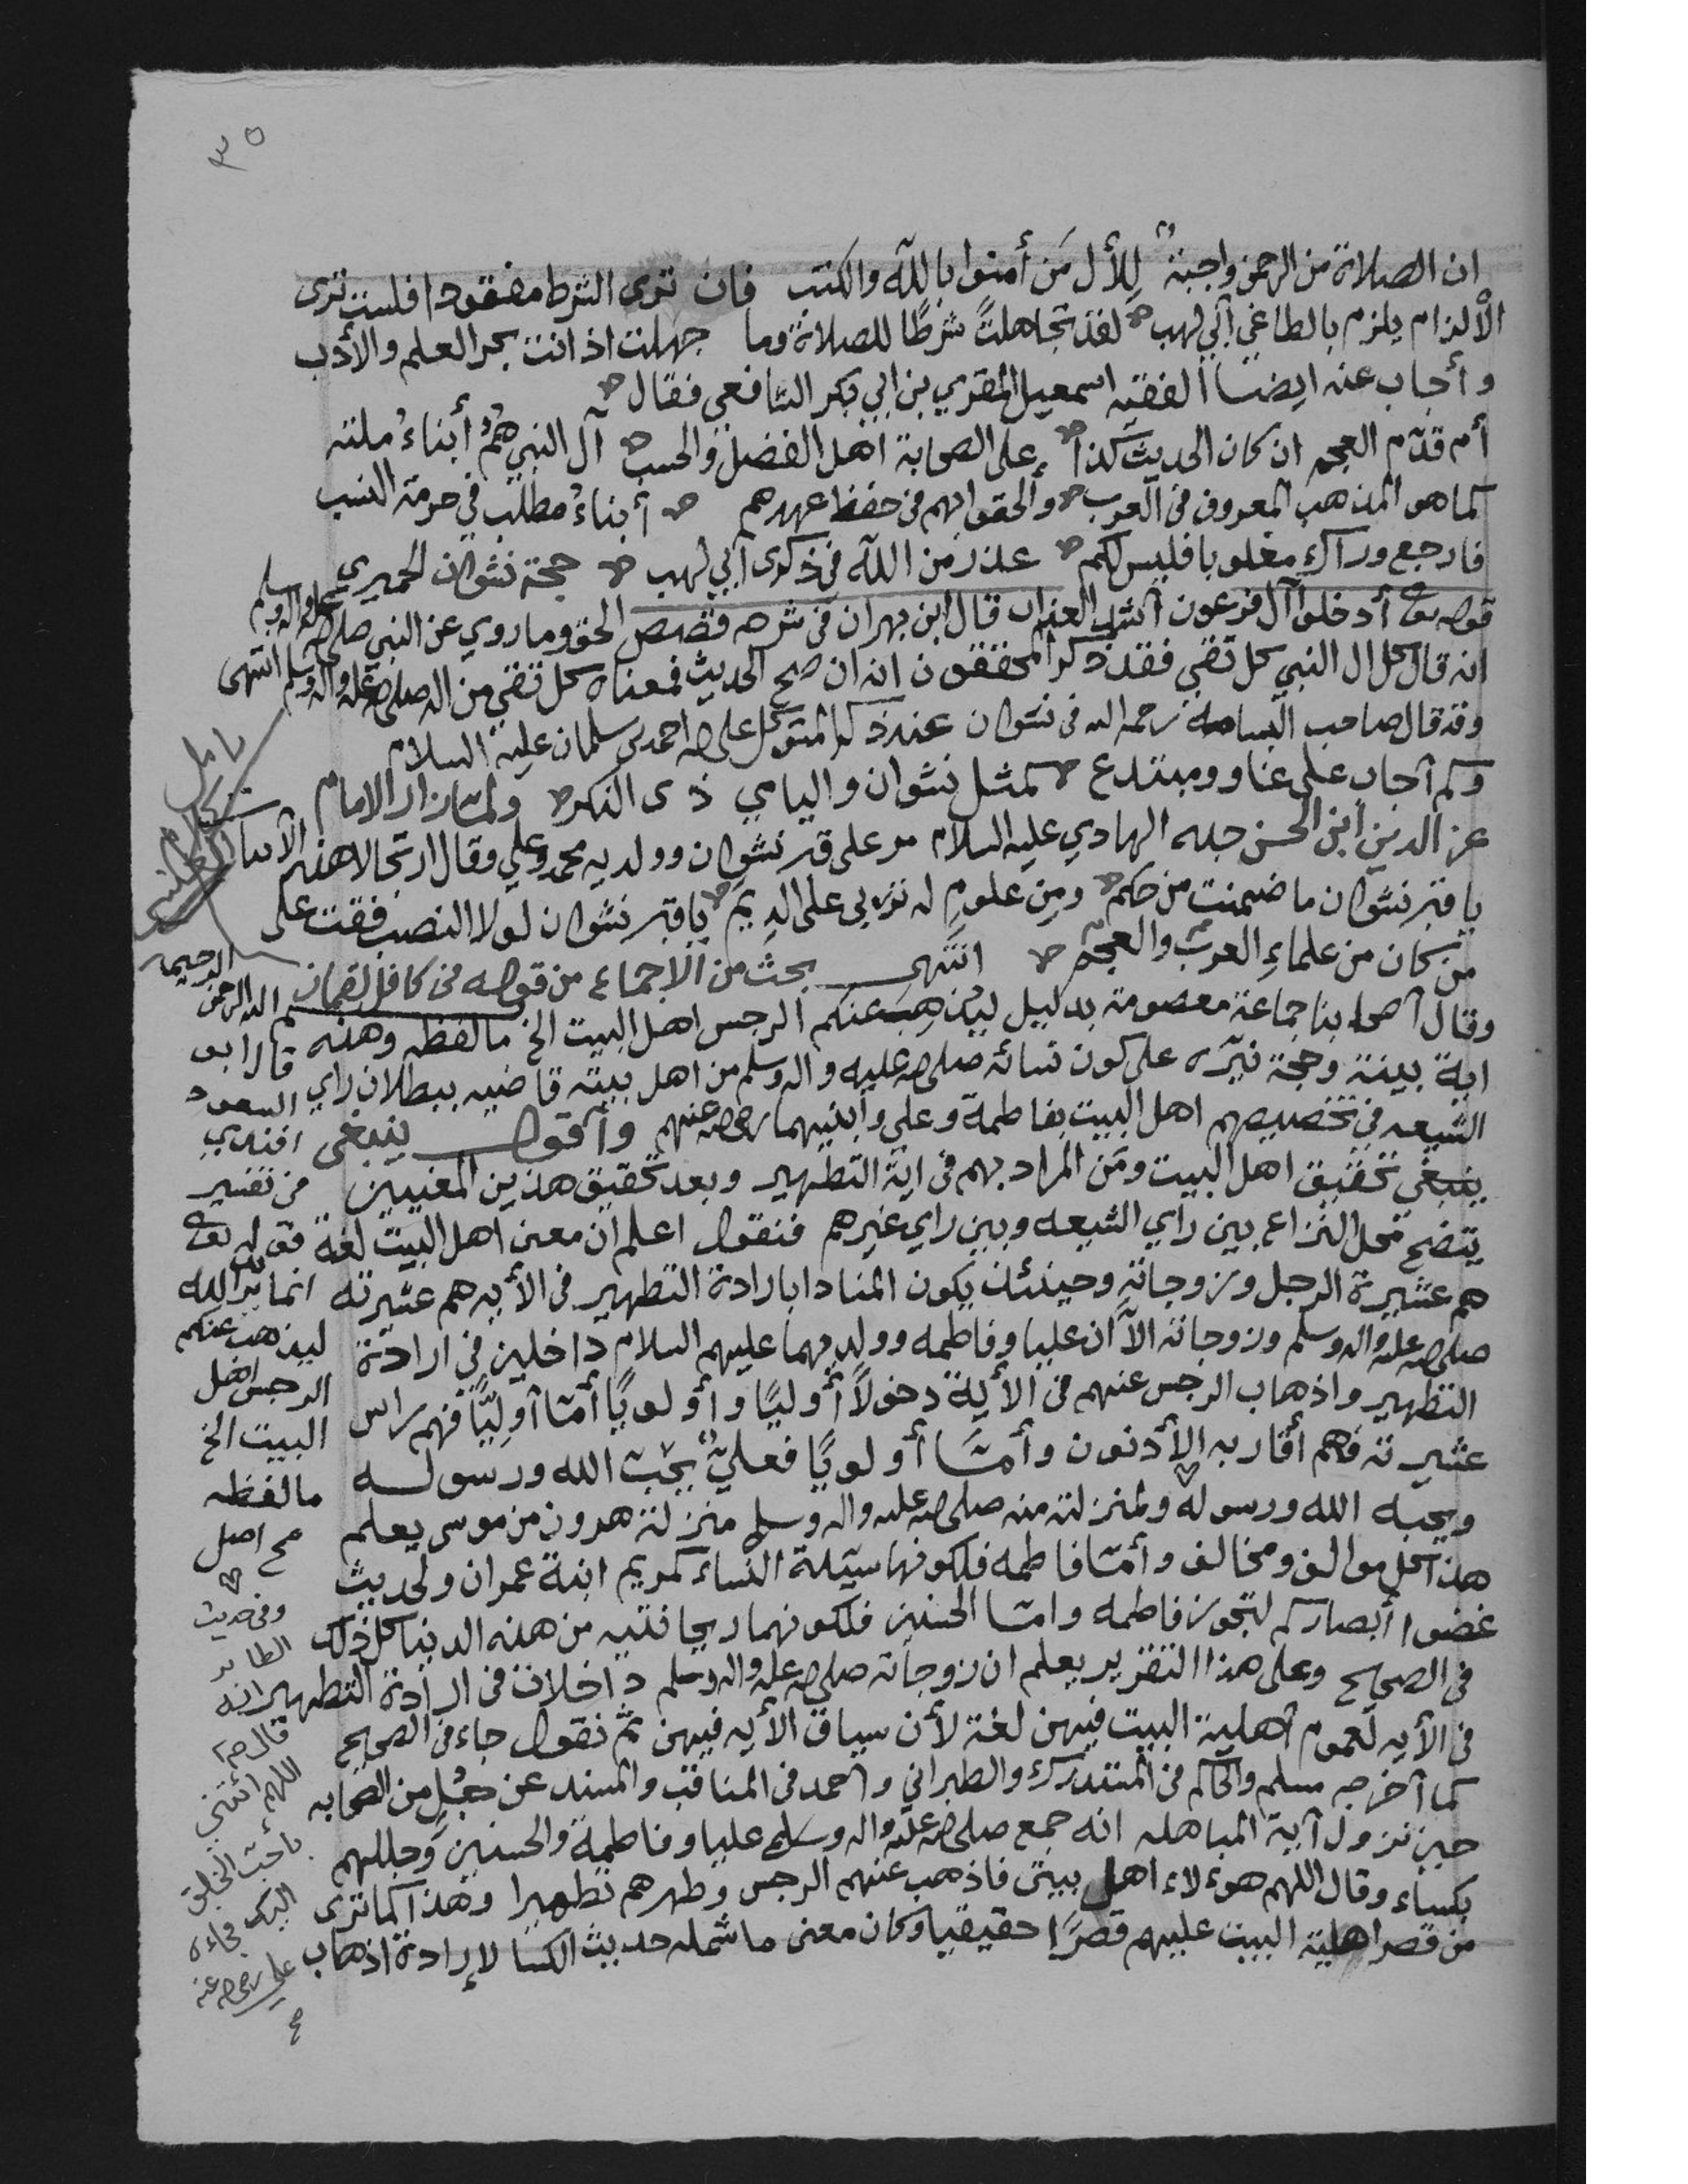 ٣٥
ان الصلاة من الرحمن واجبة للأل من أمنوا بالله والكتب فان ترى الشرط مفقودا فلست ترى
الألزام يلزم بالطاغي أبي لهب لقد تجاهلت شرطًا للصلاة وما جهلت اذ انت بحر العلم والأدب
وأجاب عنه ايضا الفقيه اسمعيل المقري بن ابي بكر الشافعي فقال
أم قدّم العجم ان كان الحديث كذا على الصحابة اهل الفضل والحسب آل النبي هم أبناء ملته
كما هو المذهب المعروف في العرب والحقوا بهم في حفظ عهدهم أبناء مطلب في حرمة النسب
فارجع وراك مغلوبا فليس لكم عذر من الله في ذكرى أبي لهب حجة نشوان الحميري
قوله تع أدخلوا آل فرعون أشد العذاب قال ابن بهران في شرحه قصص الحق وما روي عن النبي صلى الله عليه واله وسلم
انه قال كل ال النبي كل تقي فقد ذكر المحققون انه ان صح الحديث فمعناه كل تقي من اله صلى الله عليه واله وسلم انتهى
وقد قال صاحب البسامه رحمه الله في نشوان عند ذكر المتوكل على الله احمد بن سلمان عليه السلام
وكم أجاب على غاو ومبتدع كمثل نشوان واليامي ذى النكر ولما زار الامام
عز الدين ابن الحسن جده الهادي عليه السلام مر على قبر نشوان وولديه محمد وعلي وقال ارتجالا هذه الأبيات
يا قبر نشوان ما ضمنت من حكم ومن علوم له تربى على الديم يا قبر نشوان لولا النصب فقت على
من كان من علماء العرب والعجم انتهى بحث من الاجماع من قوله في كافل لقمان
وقال أصحابنا جماعة معصومة بدليل ليذهب عنكم الرجس اهل البيت الخ ما لفظه وهذه
اية بينة وحجة نيّره على كون نسائه صلى الله عليه واله وسلم من اهل بيته قاضيه ببطلان راي
الشيعه في تخصيصهم اهل البيت بفاطمة وعلي وأبنيهما رضي الله عنهم وأقول ينبغي
ينبغي تحقيق اهل البيت ومن المراد بهم في اية التطهير وبعد تحقيق هذين المعنيين
يتضح محل النزاع بين راي الشيعه وبين راي غيرهم فنقول اعلم ان معنى اهل البيت لغة
هم عشيرة الرجل وزوجاته وحينئذ يكون المنادا بارادة التطهير في الأيه هم عشيرته
صلى الله عليه واله وسلم وزوجاته الآ ان عليا وفاطمه وولديهما عليهم السلام داخلين في ارادة
التطهير واذهاب الرجس عنهم في الأية دخولاً أوليًا وأولويًا أما أوليًا فهم راس
عشيرته فهم أقاربه الأدنون وأما أولويًا فعليٌ يحب الله ورسوله
ويحبه الله ورسوله ولمنزلته منه صلى الله عليه واله وسلم منزلة هرون من موسى يعلم
هذا كل موالف ومخالف وأما فاطمه فلكونها سيدة النساء كمريم ابنة عمران ولحديث
غضوا أبصاركم لتجوز فاطمه واما الحسنين فلكونهما ريحانتيه من هذه الدنيا كل ذلك
في الصحيح وعلى هذا التقرير يعلم ان زوجاته صلى الله عليه واله وسلم داخلات في ارادة التطهير
في الأيه لعموم أهلية البيت فيهن لغة لأن سياق الأيه فيهن ثم نقول جاء في الصحيح
كما أخرجه مسلم والحاكم في المستدرك والطبراني وأحمد في المناقب والمسند عن جبل من الصحابه
حين نزول آية المباهله انه جمع صلى الله عليه واله وسلم عليا وفاطمة والحسنين وجللهم
بكساء وقال اللهم هوءلاء اهل بيتي فاذهب عنهم الرجس وطهرهم تطهيرا وهذا كما ترى
من قصر اهلية البيت عليهم قصرًا حقيقيا وكان معنى ما شمله حديث الكسا لإرادة اذهاب
قال ابو
السعود
افندي
في تفسير
قوله تع
انما يريد الله
ليذهب عنكم
الرجس اهل
البيت الخ
ما لفظه
صح اصل
وفي حديث
الطاير
انه
قال صم
اللهم ائتني
باحب الخلق
اليك فجاءه
علي رضي الله عنه